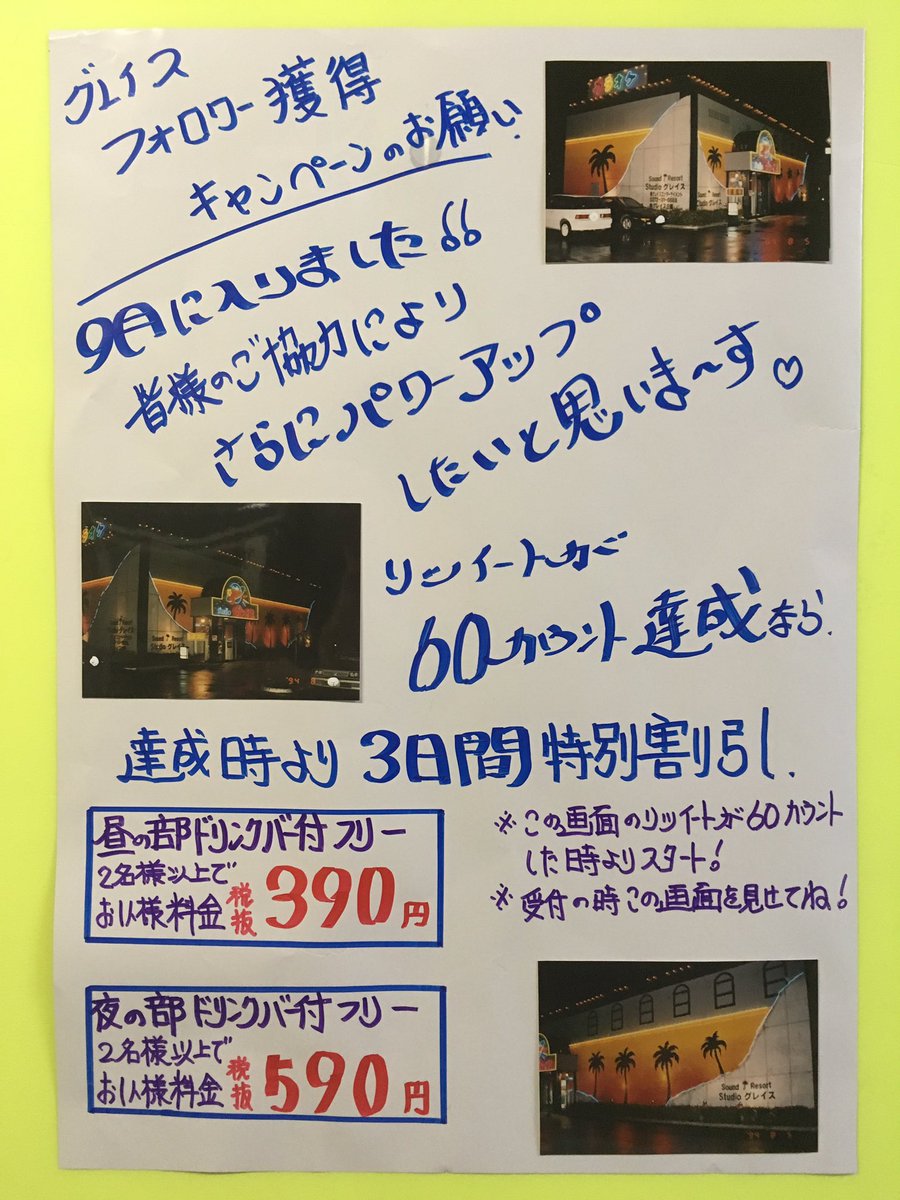 グレイス
フォロワー獲得
キャンペーンのお願い
カラオケ
Sound Resort
Studio グレイス
9月に入りました
皆様のご協力により
さらにパワーアップ
したいと思いま〜す♡
リツイートが
60カウント達成なら
Sound Resort
Studio グレイス
'94 8
達成時より3日間特別割引し
昼の部ドリンクバー付フリー
2名様以上で
お1人様料金 税抜 390円
※この画面のリツイートが60カウント
した時よりスタート!
※受付の時この画面を見せてね!
夜の部ドリンクバー付フリー
2名様以上で
お1人様料金 税抜 590円
Sound Resort
Studio グレイス